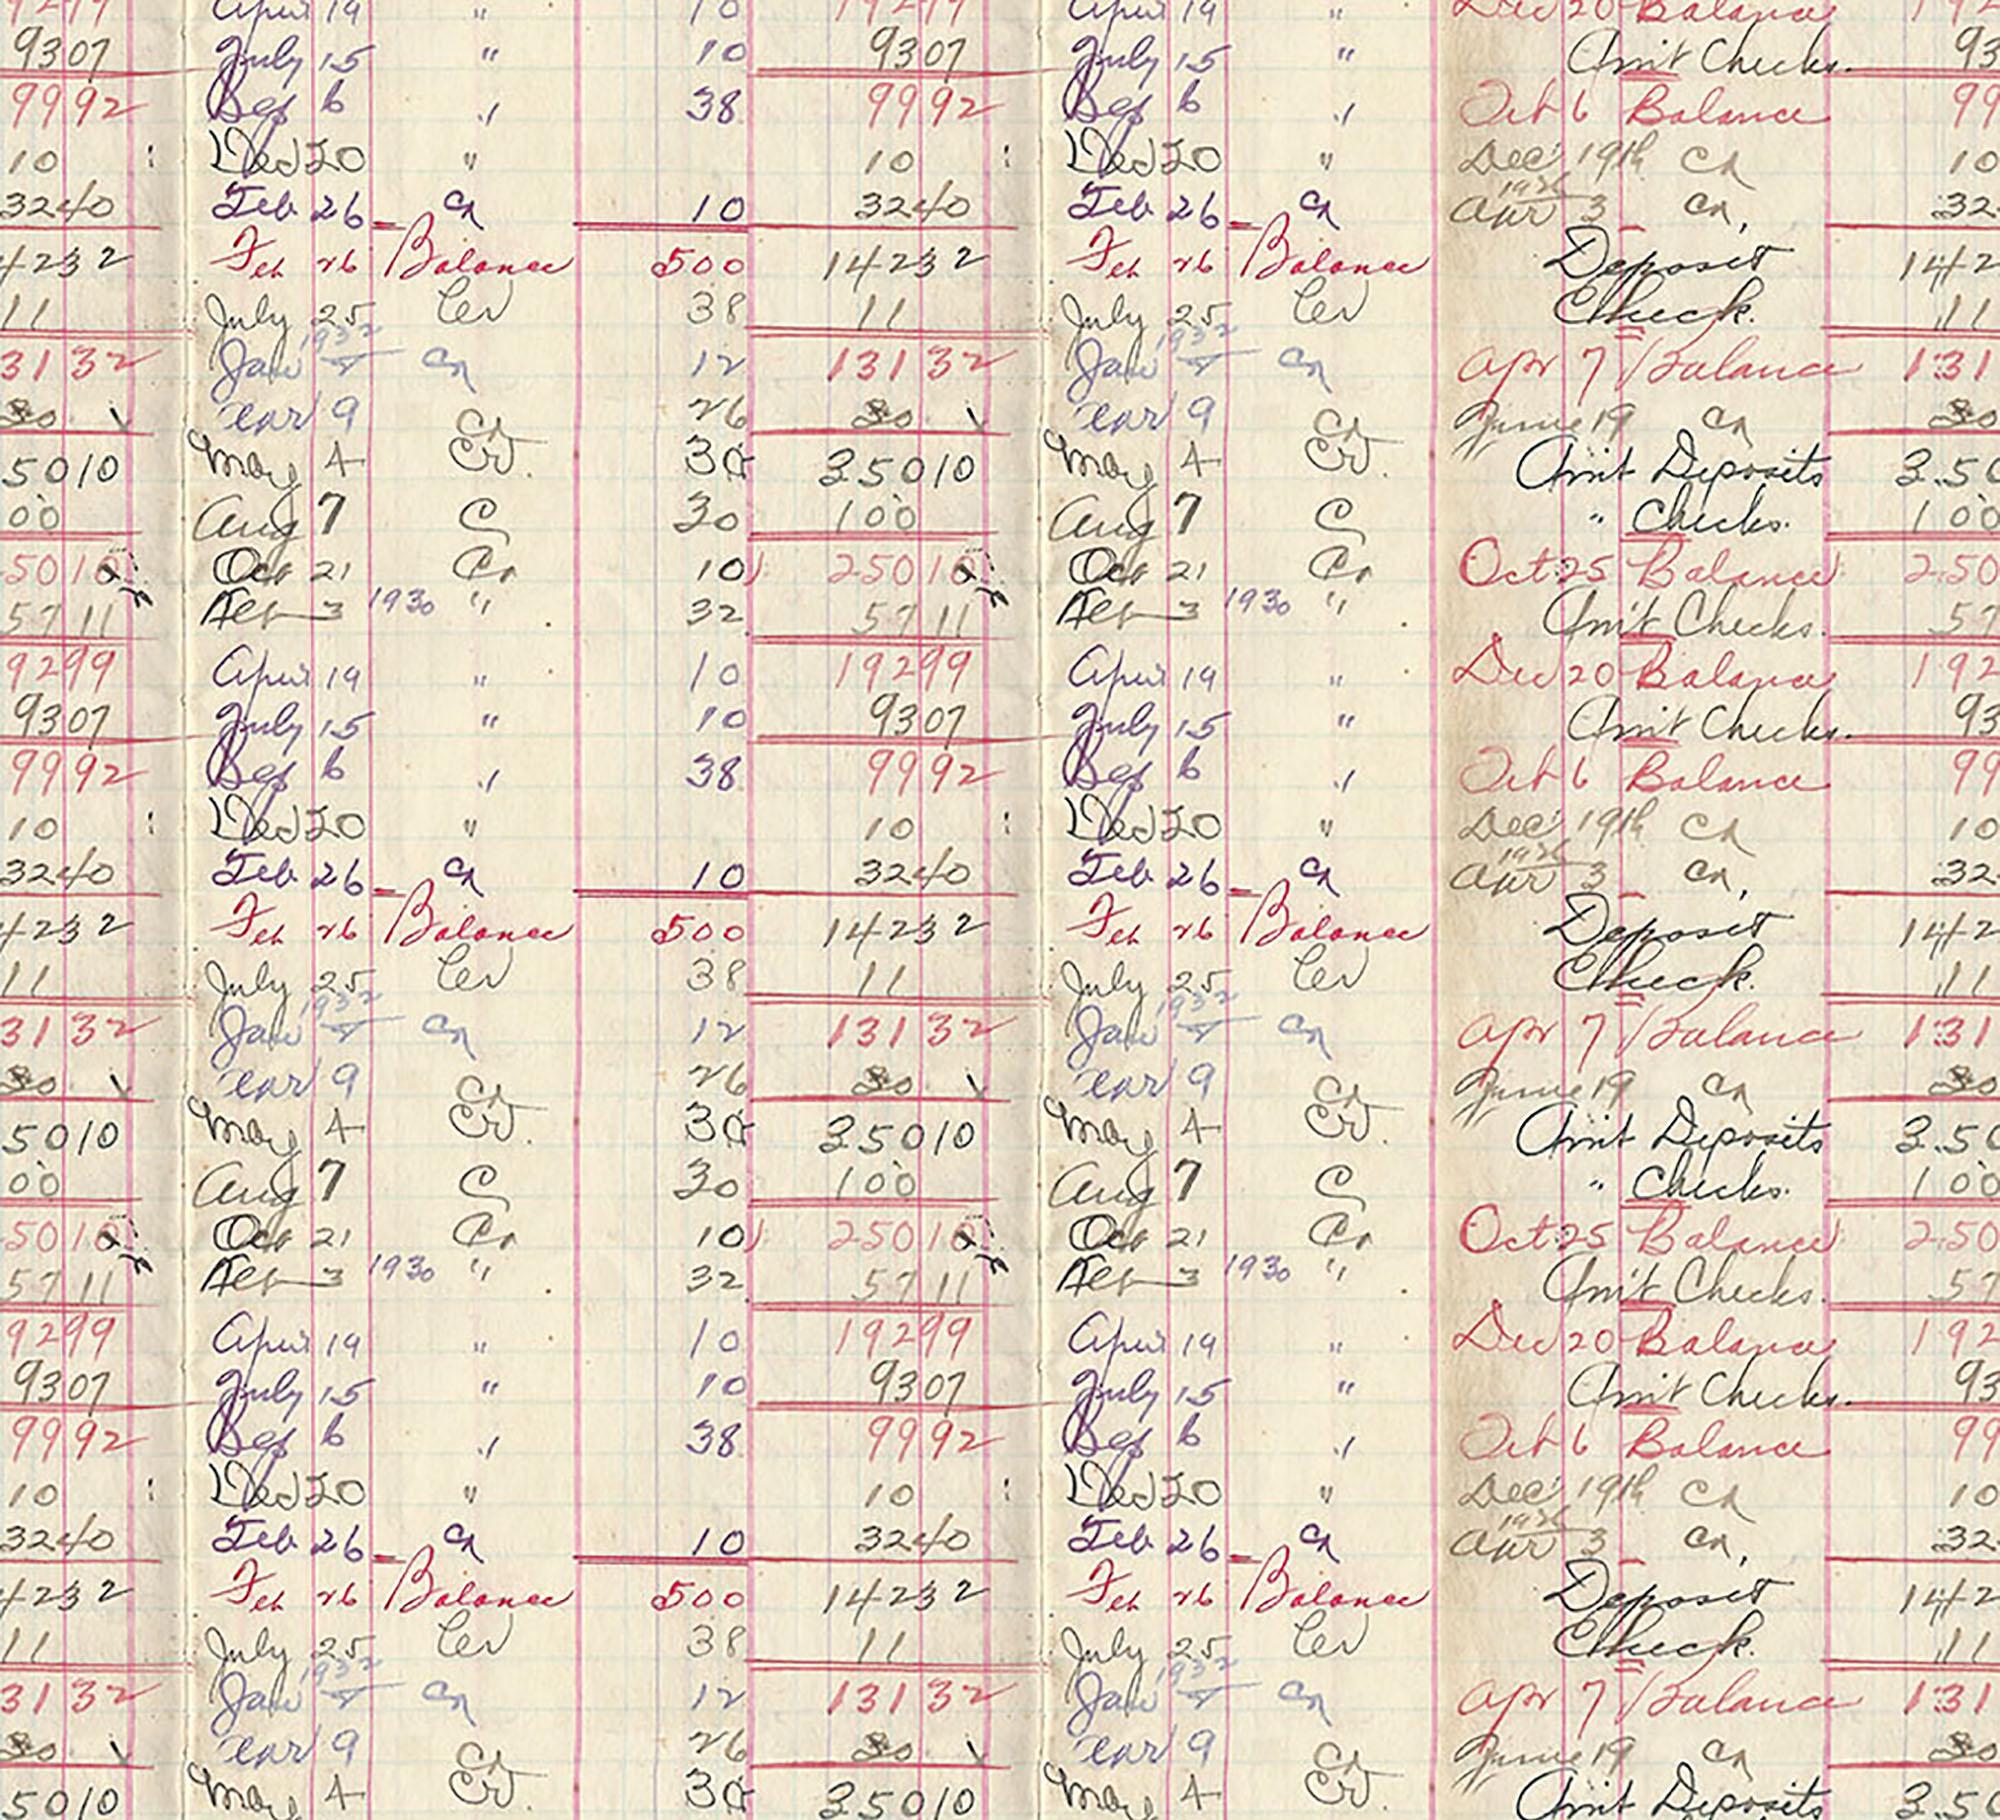 April 19 " 10 19299 April 19 " Dec 20 Balance 192
9307 July 15 " 10 9307 July 15 " Am't Checks. 93
9992 Sep 6 " 38 9992 Sep 6 " Oct 6 Balance 99
10 Dec 20 " 10 Dec 20 " Dec 19th Cr 10
3240 Feb 26 Cr 10 3240 Feb 26 Cr Apr 3 1926 Cr, 32
4232 Feb 26 Balance 500 14232 Feb 26 Balance Deposit 142
11 July 25 Cr 38 11 July 25 Cr Check. 11
3132 Jan 1932 Cr 12 13132 Jan 1932 Cr Apr 7 Balance 131
30 Mar 9 Cr 26 30 Mar 9 Cr June 19 Cr 30
5010 May 4 Cr. 30 35010 May 4 Cr. Am't Deposits 350
00 Aug 7 C 30 100 Aug 7 C " Checks. 100
5010 Oct 21 Cr 10 25010 Oct 21 Cr Oct 25 Balance 250
5711 3 1930 " 32 5711 3 1930 " Am't Checks. 57
9299 April 19 " 10 19299 April 19 " Dec 20 Balance 192
9307 July 15 " 10 9307 July 15 " Am't Checks. 93
9992 Sep 6 " 38 9992 Sep 6 " Oct 6 Balance 99
10 Dec 20 " 10 Dec 20 " Dec 19th Cr 10
3240 Feb 26 Cr 10 3240 Feb 26 Cr Apr 3 1926 Cr, 32
4232 Feb 26 Balance 500 14232 Feb 26 Balance Deposit 142
11 July 25 Cr 38 11 July 25 Cr Check. 11
3132 Jan 1932 Cr 12 13132 Jan 1932 Cr Apr 7 Balance 131
30 Mar 9 Cr 26 30 Mar 9 Cr June 19 Cr 30
5010 May 4 Cr. 30 35010 May 4 Cr. Am't Deposits 350
00 Aug 7 C 30 100 Aug 7 C " Checks. 100
5010 Oct 21 Cr 10 25010 Oct 21 Cr Oct 25 Balance 250
5711 3 1930 " 32 5711 3 1930 " Am't Checks. 57
9299 April 19 " 10 19299 April 19 " Dec 20 Balance 192
9307 July 15 " 10 9307 July 15 " Am't Checks. 93
9992 Sep 6 " 38 9992 Sep 6 " Oct 6 Balance 99
10 Dec 20 " 10 Dec 20 " Dec 19th Cr 10
3240 Feb 26 Cr 10 3240 Feb 26 Cr Apr 3 1926 Cr, 32
4232 Feb 26 Balance 500 14232 Feb 26 Balance Deposit 142
11 July 25 Cr 38 11 July 25 Cr Check. 11
3132 Jan 1932 Cr 12 13132 Jan 1932 Cr Apr 7 Balance 131
30 Mar 9 Cr 26 30 Mar 9 Cr June 19 Cr 30
5010 May 4 Cr. 30 35010 May 4 Cr. Am't Deposits 350